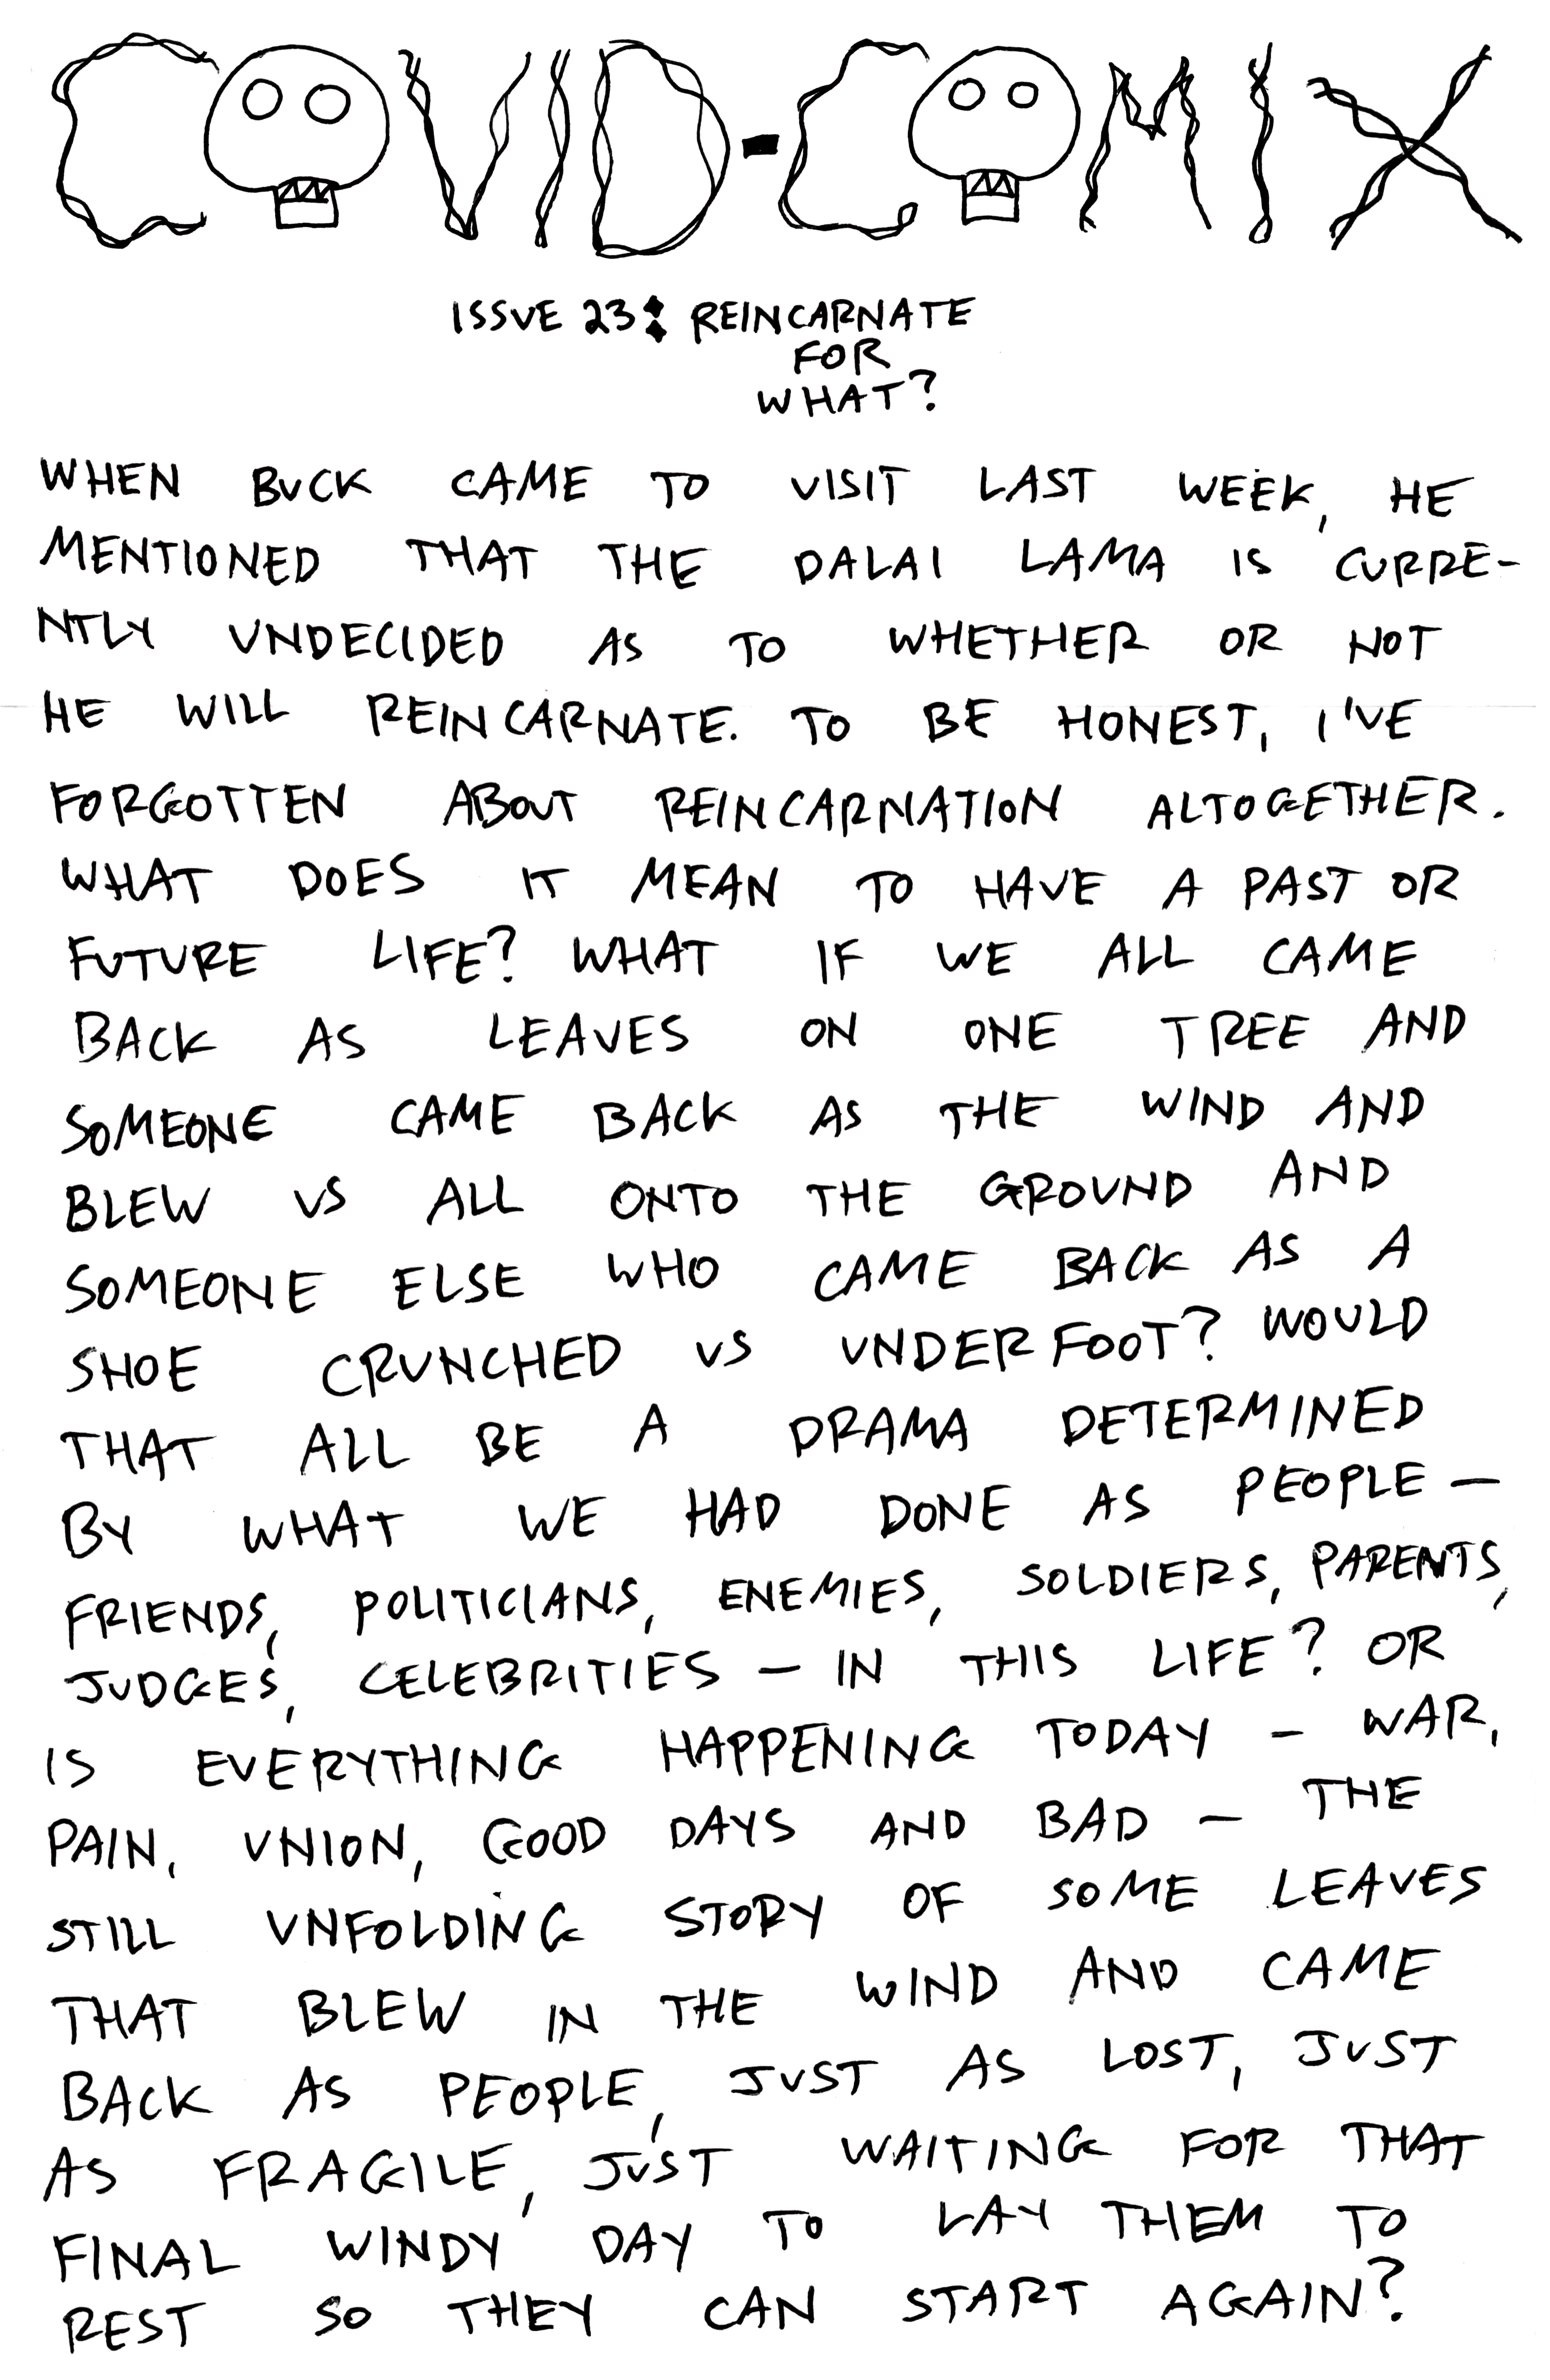 COVID-COMIX
ISSUE 23: REINCARNATE
FOR
WHAT?
WHEN BUCK CAME TO VISIT LAST WEEK, HE
MENTIONED THAT THE DALAI LAMA IS CURRE-
NTLY UNDECIDED AS TO WHETHER OR NOT
HE WILL REINCARNATE. TO BE HONEST, I'VE
FORGOTTEN ABOUT REINCARNATION ALTOGETHER.
WHAT DOES IT MEAN TO HAVE A PAST OR
FUTURE LIFE? WHAT IF WE ALL CAME
BACK AS LEAVES ON ONE TREE AND
SOMEONE CAME BACK AS THE WIND AND
BLEW US ALL ONTO THE GROUND AND
SOMEONE ELSE WHO CAME BACK AS A
SHOE CRUNCHED US UNDERFOOT? WOULD
THAT ALL BE A DRAMA DETERMINED
BY WHAT WE HAD DONE AS PEOPLE —
FRIENDS, POLITICIANS, ENEMIES, SOLDIERS, PARENTS,
JUDGES, CELEBRITIES — IN THIS LIFE? OR
IS EVERYTHING HAPPENING TODAY — WAR,
PAIN, UNION, GOOD DAYS AND BAD — THE
STILL UNFOLDING STORY OF SOME LEAVES
THAT BLEW IN THE WIND AND CAME
BACK AS PEOPLE, JUST AS LOST, JUST
AS FRAGILE, JUST WAITING FOR THAT
FINAL WINDY DAY TO LAY THEM TO
REST SO THEY CAN START AGAIN?